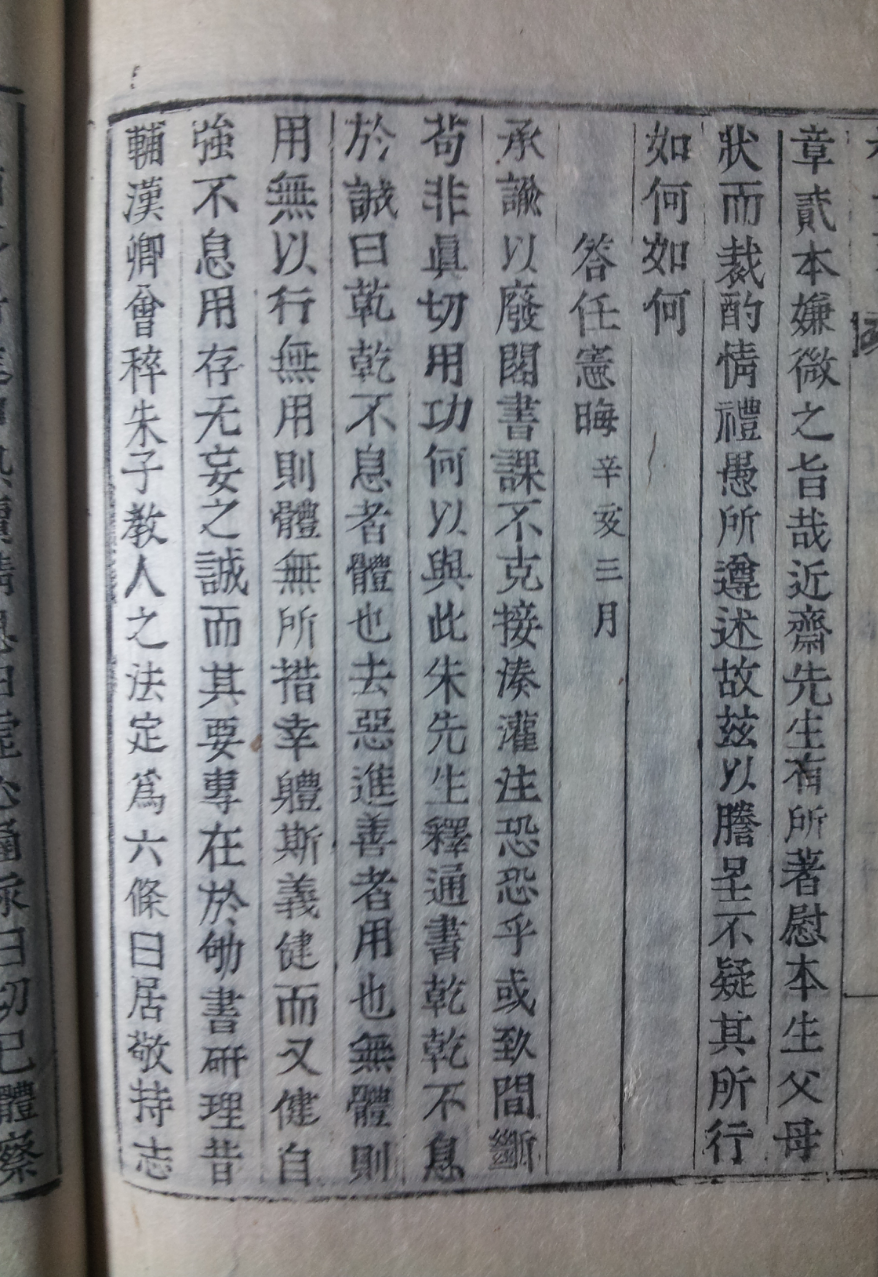 章貳本嫌微之旨哉近齋先生有所著慰本生父母
狀而裁酌情禮愚所遵述故玆以謄呈不疑其所行
如何如何
答任憲晦辛亥三月
承諭以廢閣書課不克接湊灌注恐恐乎或致間斷
苟非眞切用功何以與此朱先生釋通書乾乾不息
於誠曰乾乾不息者體也去惡進善者用也無體則
用無以行無用則體無所措幸軆斯義健而又健自
強不息用存无妄之誠而其要專在於劬書硏理昔
輔漢卿會稡朱子敎人之法定爲六條曰居敬持志
虛心 曰切己體察